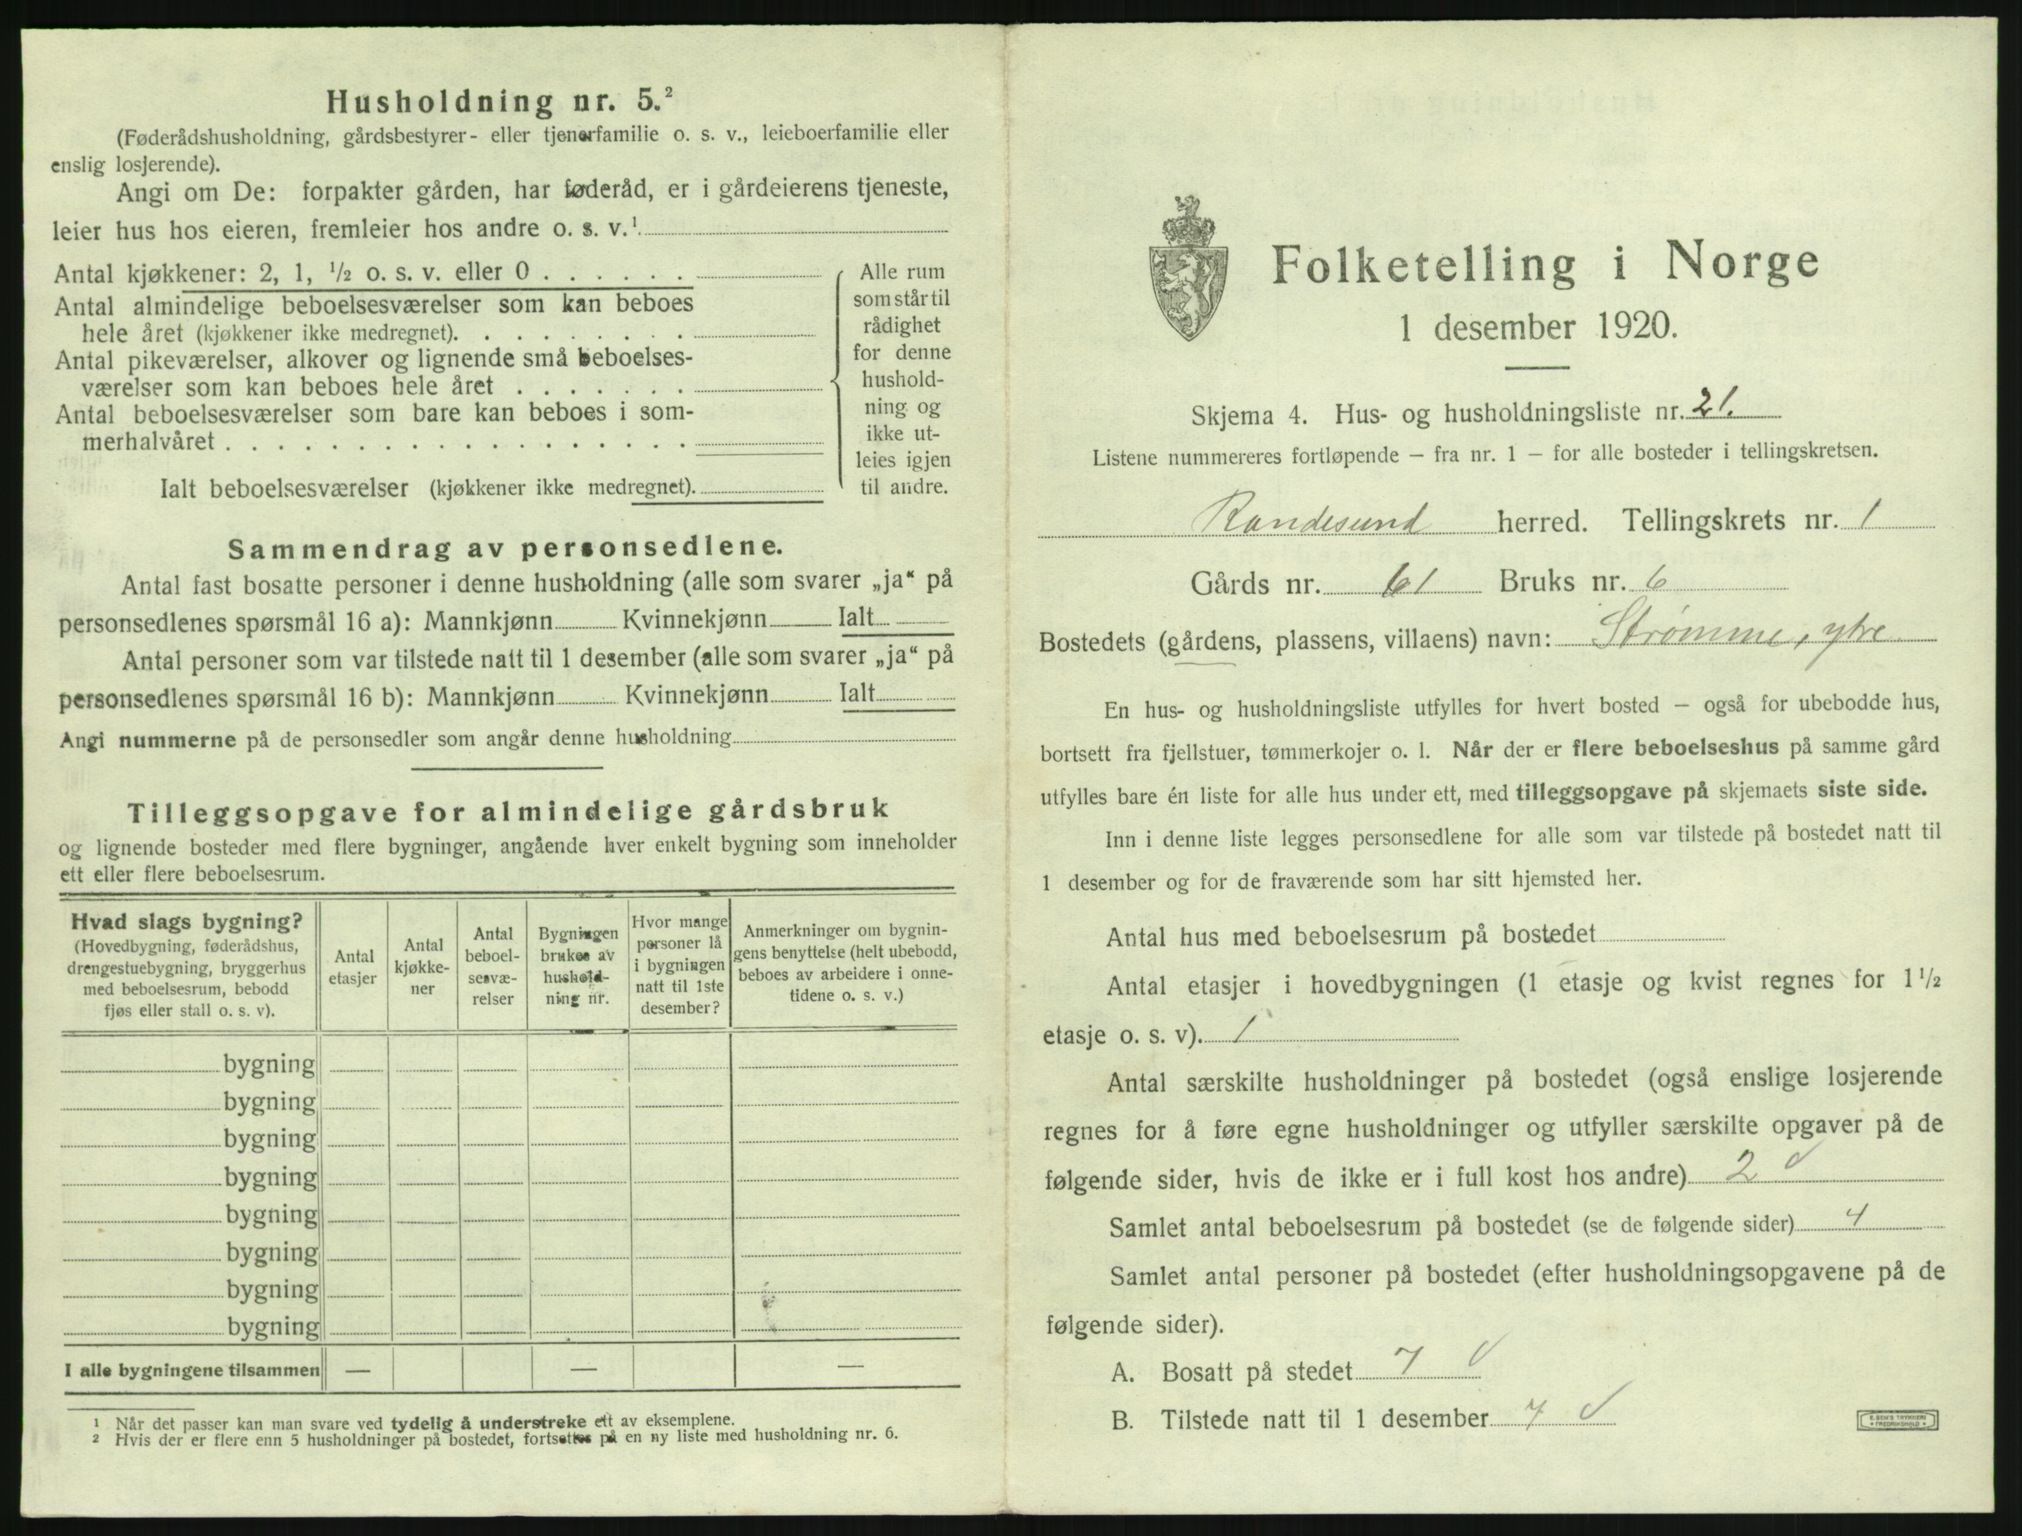 Husholdning nr. 5.²
(Føderådshusholdning, gårdsbestyrer- eller tjenerfamilie o. s. v., leieboerfamilie eller
enslig losjerende).
Angi om De: forpakter gården, har føderåd, er i gårdeierens tjeneste,
leier hus hos eieren, fremleier hos andre o. s. v.¹
Antal kjøkkener: 2, 1, ½ o. s. v. eller 0 . . . . . .
Antal almindelige beboelsesværelser som kan beboes
hele året (kjøkkener ikke medregnet). . . . . . . . .
Antal pikeværelser, alkover og lignende små beboelses-
værelser som kan beboes hele året . . . . . . .
Antal beboelsesværelser som bare kan beboes i som-
merhalvåret . . . . . . . . . . . . . . . . . .
Ialt beboelsesværelser (kjøkkener ikke medregnet).
Alle rum
som står til
rådighet
for denne
hushold-
ning og
ikke ut-
leies igjen
til andre.
Sammendrag av personsedlene.
Antal fast bosatte personer i denne husholdning (alle som svarer „ja“ på
personsedlenes spørsmål 16 a): Mannkjønn Kvinnekjønn Ialt
Antal personer som var tilstede natt til 1 desember (alle som svarer „ja“ på
personsedlenes spørsmål 16 b): Mannkjønn Kvinnekjønn Ialt
Angi nummerne på de personsedler som angår denne husholdning
Tilleggsopgave for almindelige gårdsbruk
og lignende bosteder med flere bygninger, angående hver enkelt bygning som inneholder
ett eller flere beboelsesrum.
Hvad slags bygning?
(Hovedbygning, føderådshus,
drengestuebygning, bryggerhus
med beboelsesrum, bebodd
fjøs eller stall o. s. v).
Antal
etasjer
Antal
kjøkke-
ner
Antal
beboel-
sesvæ-
relser
Bygningen
brukes av
hushold-
ning nr.
Hvor mange
personer lå
i bygningen
natt til 1ste
desember?
Anmerkninger om bygnin-
gens benyttelse (helt ubebodd,
beboes av arbeidere i onne-
tidene o. s. v.)
bygning
bygning
bygning
bygning
bygning
bygning
bygning
bygning
I alle bygningene tilsammen — — —
¹ Når det passer kan man svare ved tydelig å understreke ett av eksemplene.
² Hvis der er flere enn 5 husholdninger på bostedet, fortsettes på en ny liste med husholdning nr. 6.
Folketelling i Norge
1 desember 1920.
Skjema 4. Hus- og husholdningsliste nr. 21.
Listene nummereres fortløpende – fra nr. 1 – for alle bosteder i tellingskretsen.
Randesund herred. Tellingskrets nr. 1
Gårds nr. 61 Bruks nr. 6
Bostedets (gårdens, plassens, villaens) navn: Strømme, ytre
En hus- og husholdningsliste utfylles for hvert bosted – også for ubebodde hus,
bortsett fra fjellstuer, tømmerkojer o. l. Når der er flere beboelseshus på samme gård
utfylles bare én liste for alle hus under ett, med tilleggsopgave på skjemaets siste side.
Inn i denne liste legges personsedlene for alle som var tilstede på bostedet natt til
1 desember og for de fraværende som har sitt hjemsted her.
Antal hus med beboelsesrum på bostedet
Antal etasjer i hovedbygningen (1 etasje og kvist regnes for 1½
etasje o. s. v). 1
Antal særskilte husholdninger på bostedet (også enslige losjerende
regnes for å føre egne husholdninger og utfyller særskilte opgaver på de
følgende sider, hvis de ikke er i full kost hos andre) 2
Samlet antal beboelsesrum på bostedet (se de følgende sider) 4
Samlet antal personer på bostedet (efter husholdningsopgavene på de
følgende sider).
A. Bosatt på stedet 7
B. Tilstede natt til 1 desember 7